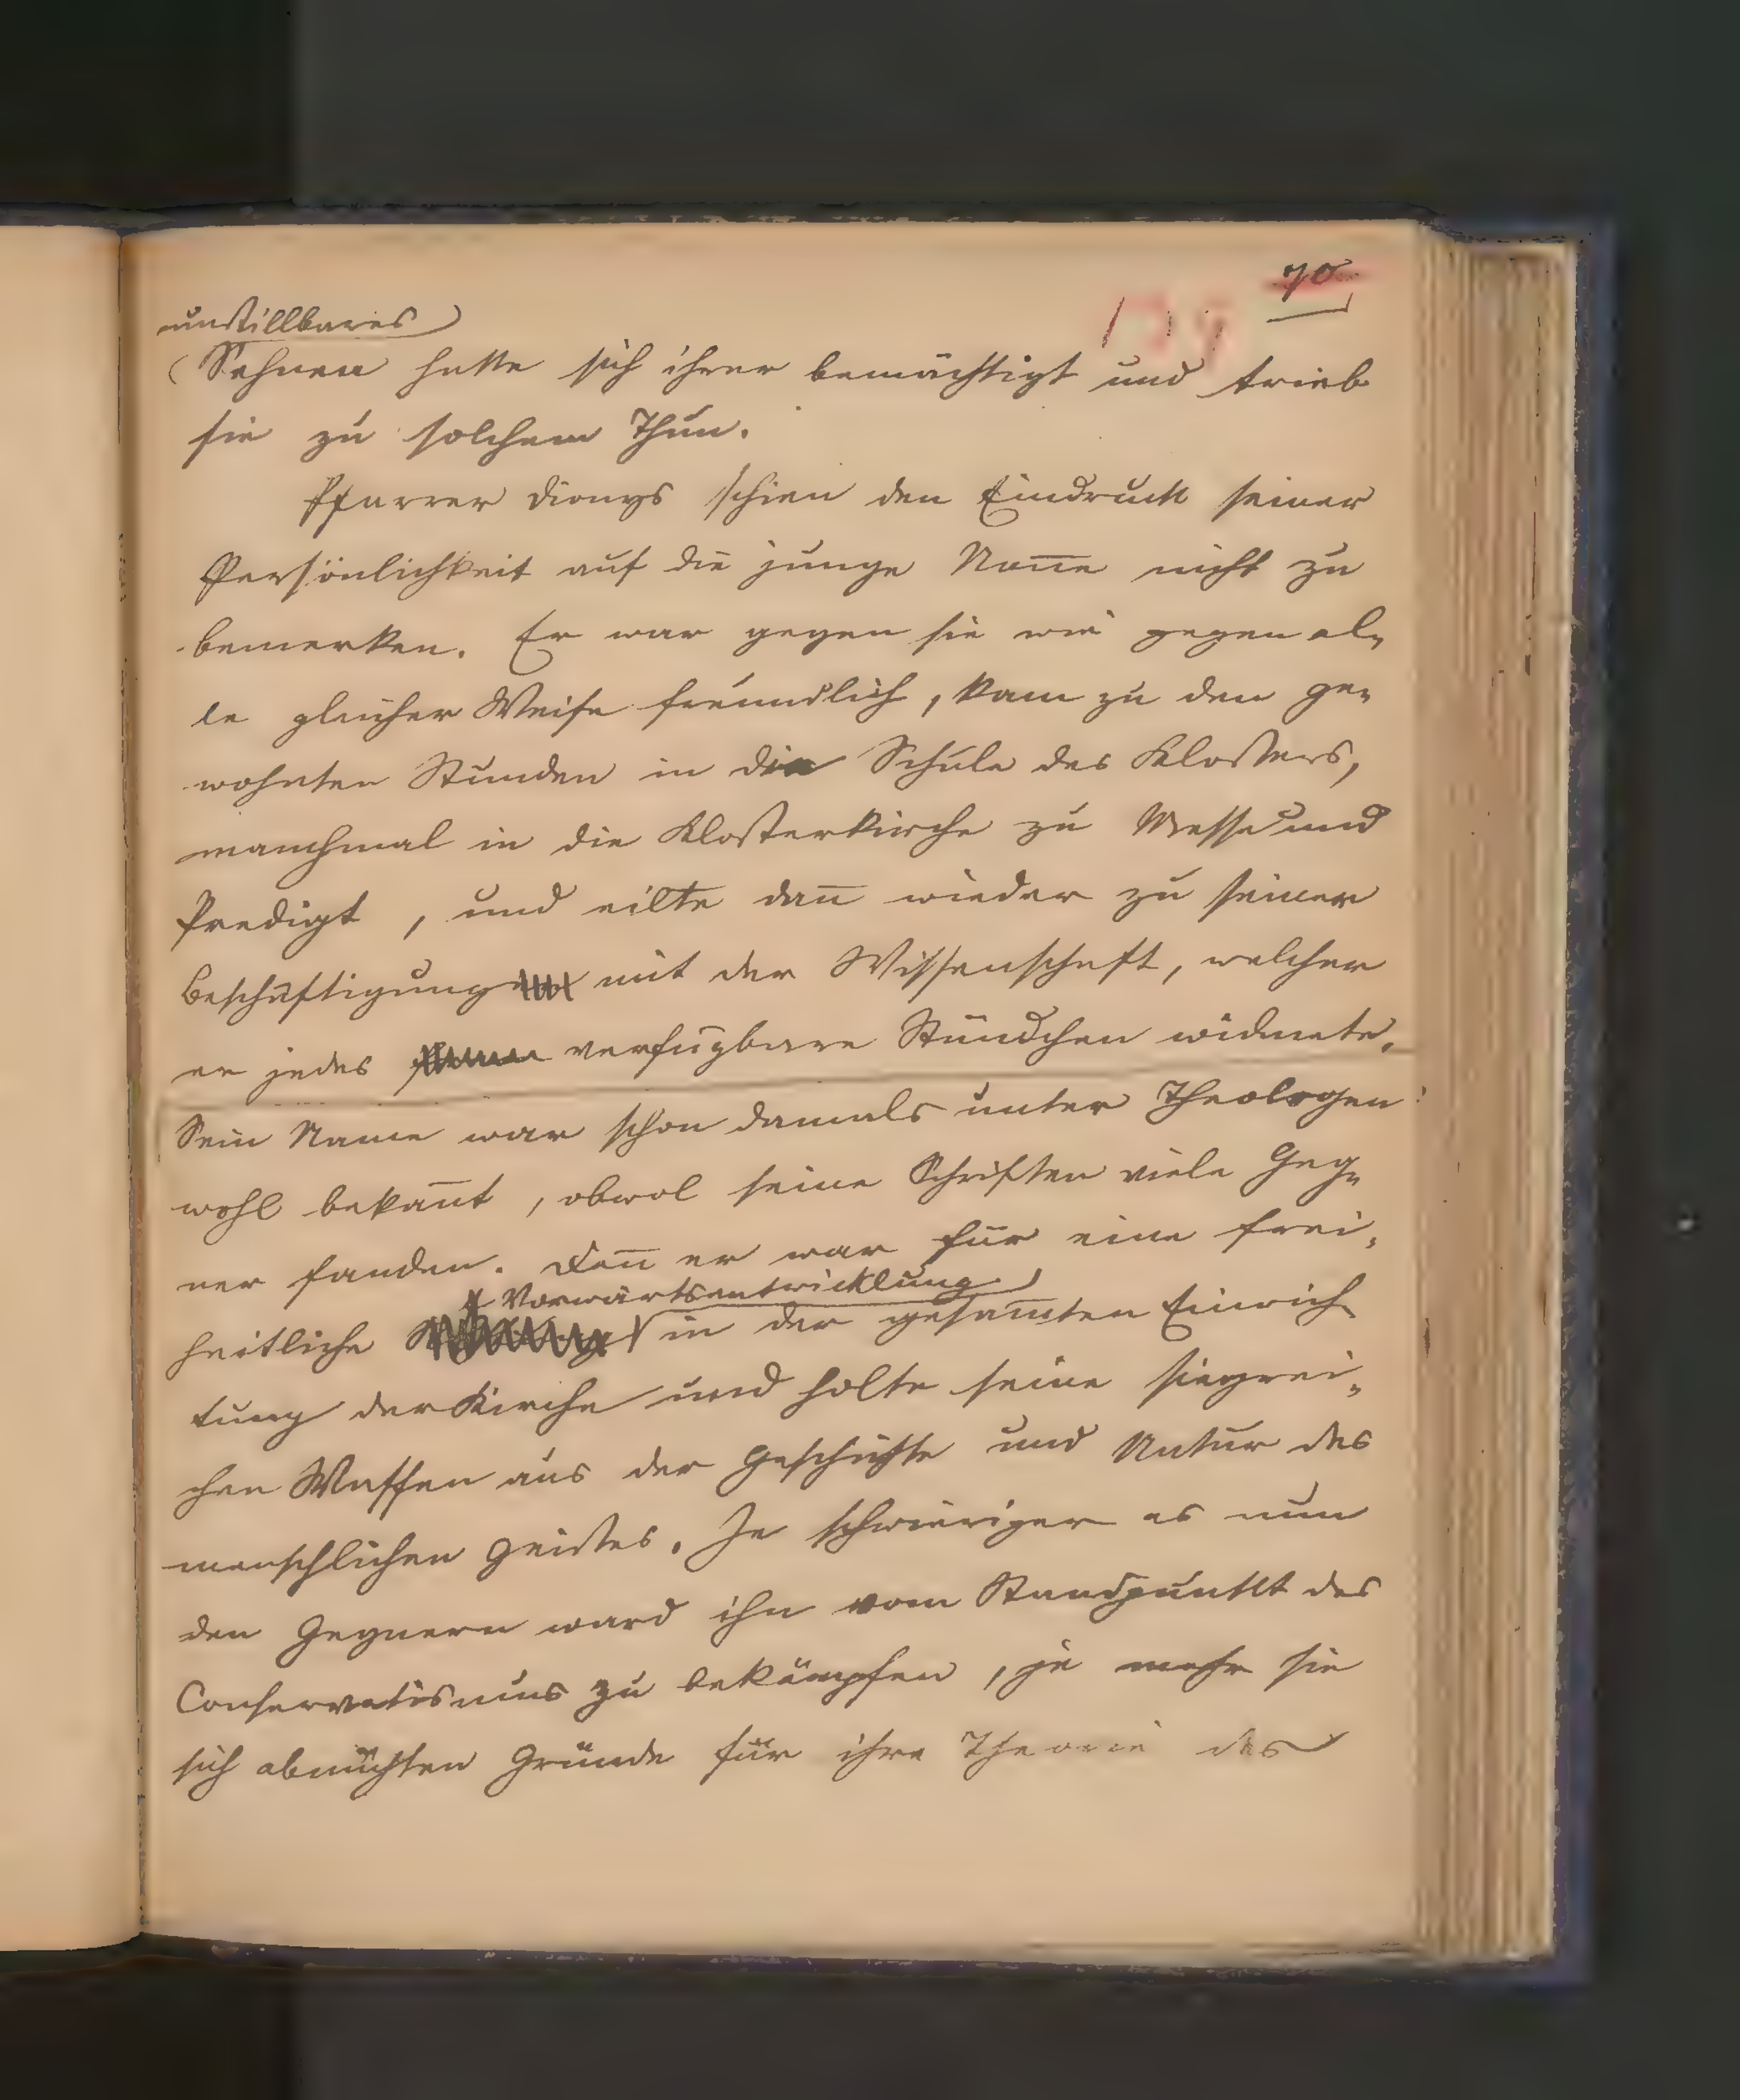 70
139
unstillbares
Sehnen hatte sich ihrer bemächtigt und trieb
sie zu solchem Thun.
Pfarrer Dionys schien den Eindruck seiner
Persönlichkeit auf die junge Non̅e nicht zu
bemerken. Er war gegen sie wie gegen al„
le gleicher Weise freundlich, kam zu den ge„
wohnten Stunden in die Schule des Klosters,
manchmal in die Klosterkirche zu Messe und
Predigt, und eilte dan̅ wieder zu seiner
Beschäftigung mit der Wissenschaft, welcher
er jedes verfügbare Stündchen widmete.
Sein Name war schon damals unter Theologen
wohl bekan̅t, obwol seine Schriften viele Geg„
ner fanden. Den̅ er war für eine frei„
Vorwärtsentwicklung
heitliche in der gesam̅ten Einrich„
tung der Kirche und holte seine siegrei„
chen Waffen aus der Geschichte und Natur des
menschlichen Geistes. Je schwieriger es nun
den Gegnern ward ihn vom Standpunkt des
Conservatismus zu bekämpfen, je mehr sie
sich abmühten Gründe für ihre Theorie des